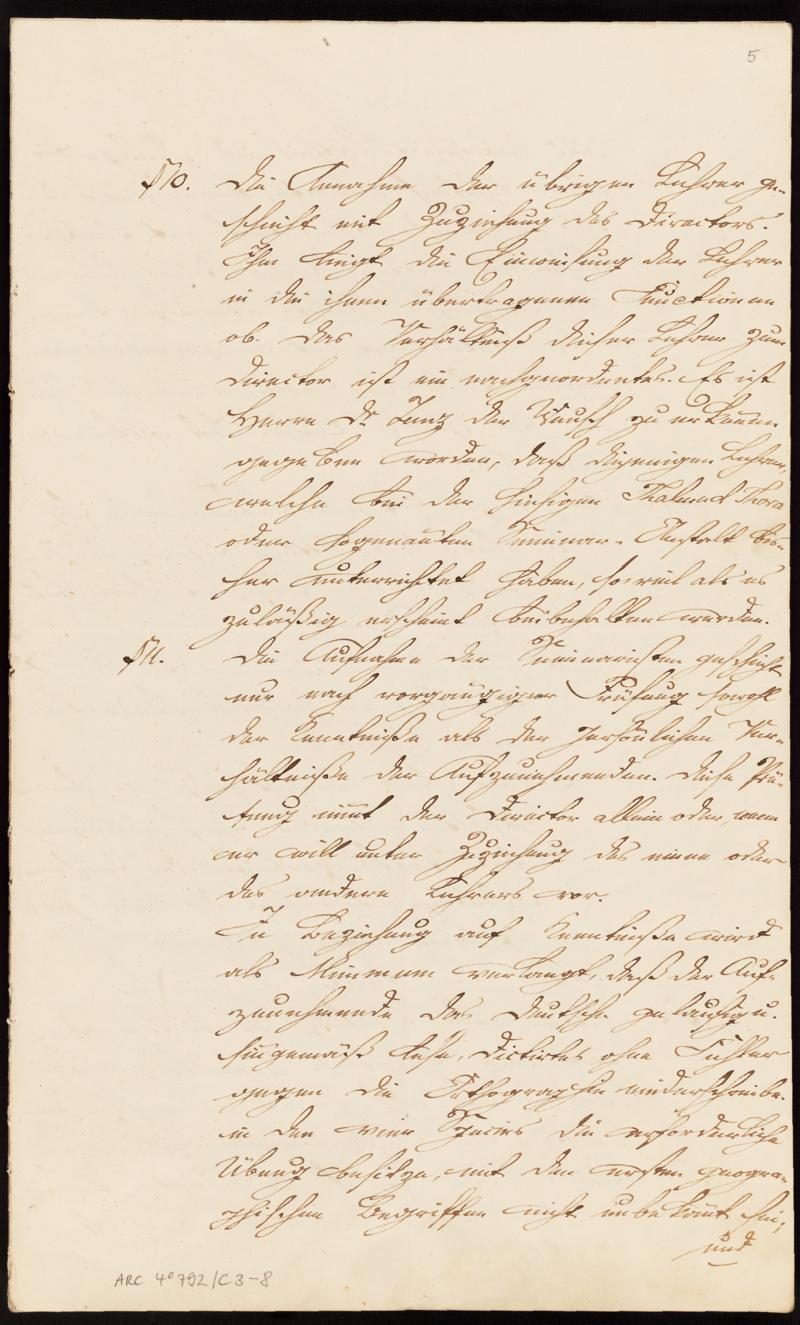 5
§10. Die Annahme der übrigen Lehrer ge-
schieht mit Zuziehung des Directors.
Ihm liegt die Einweisung der Lehrer
in die ihnen übertragenen Functionen
ob. Das Verhältniß dieser Lehrer zum
Director ist ein nachgeordnetes. Es ist
Herrn Dr Zunz der Wunsch zu erkennen
gegeben worden, daß diejenigen Lehrer,
welche bei der hiesigen Thalmud Thora
oder sogenannten Seminar-Anstalt bis-
her unterrichtet haben, so weit als es
zuläßig erscheint beibehalten werden.
§11. Die Aufnahme der Seminaristen geschieht
nur nach vorgängiger Prüfung sowohl
der Kenntniße als der persönlichen Ver-
hältniße der Aufzunehmenden. Diese Prü-
fung nimt der Director allein oder, wenn
er will unter Zuziehung des einen oder
des andern Lehrers vor.
In Beziehung auf Kenntniße wird
als Minimum verlangt, daß der Auf-
zunehmende das Deutsche geläufig u.
sinngemäß lese, Dictirtes ohne Fehler
gegen die Orthographie niederschreibe.
in den vier Species die erforderliche
Übung besitze, mit den ersten geogra-
phischen Begriffen nicht unbekannt sei,
und
ARC 4° 792/C3-8